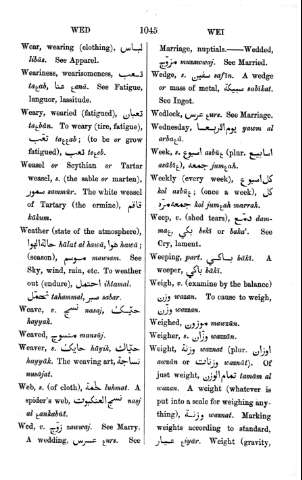 WED 1045 WEI
Wear, wearing (clothing), لباس
libās. See Apparel.
Weariness, wearisomeness, تعب
taʿab, عنا ʿanā. See Fatigue,
languor, lassitude.
Weary, wearied (fatigued), تعبان
taʿbān. To weary (tire, fatigue),
تعب taʿʿab; (to be or grow
fatigued), تعب taʿeb.
Weasel or Scythian or Tartar
weasel, s. (the sable or marten),
سمور sammūr. The white weasel
of Tartary (the ermine), قاقم
kākum.
Weather (state of the atmosphere),
حالة الهوا hālat al hawā, هوا hawā;
(season), موسم mawsem. See
Sky, wind, rain, etc. To weather
out (endure), احتمل ihtamal.
تحمل tahammal, صبر sabar.
Weave, v. نسج nasaj, حيّك
hayyak.
Weaved, منسوج mansūj.
Weaver, s. حايك hāyik, حيّاك
hayyāk. The weaving art, نساجة
nusājat.
Web, s. (of cloth), لحمة luhmat. A
spider's web, نسج العنكبوت nasj
al ʿankabūt.
Wed, v. زوّج zawwaj. See Marry.
A wedding, عرس ʿurs. See
Marriage, nuptials.—Wedded,
مزوّج muzawwaj. See Married.
Wedge, s. سفين safīn. A wedge
or mass of metal, سبيكة sabīkat.
See Ingot.
Wedlock, عرس ʿurs. See Marriage.
Wednesday, يوم الاربعا yawm al
arbaʿā.
Week, s. اسبوع asbūʿ (plur. اسابيع
asābīʿ), جمعه jumʿah.
Weekly (every week), كل اسبوع
kol asbūʿ; (once a week), كل
جمعه مرّه kol jumʿah marrah.
Weep, v. (shed tears), دمع dam-
maʿ, بكى bekī or baka'. See
Cry, lament.
Weeping, part. باكي bākī. A
weeper, باكي bākī.
Weigh, v. (examine by the balance)
وزن wazan. To cause to weigh,
وزن wazan.
Weighed, موزون mawzūn.
Weigher, s. وزّان wazzān.
Weight, وزنة waznat (plur. اوزان
awzān or وزنات waznāt). Of
just weight, تمام الوزن tamām al
wazan. A weight (whatever is
put into a scale for weighing any-
thing), وزنة waznat. Marking
weights according to standard,
عيار ʿiyār. Weight (gravity,